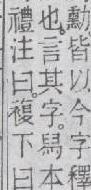 勳皆以今字釋
也。言其字。舄本
禮注曰。複下曰